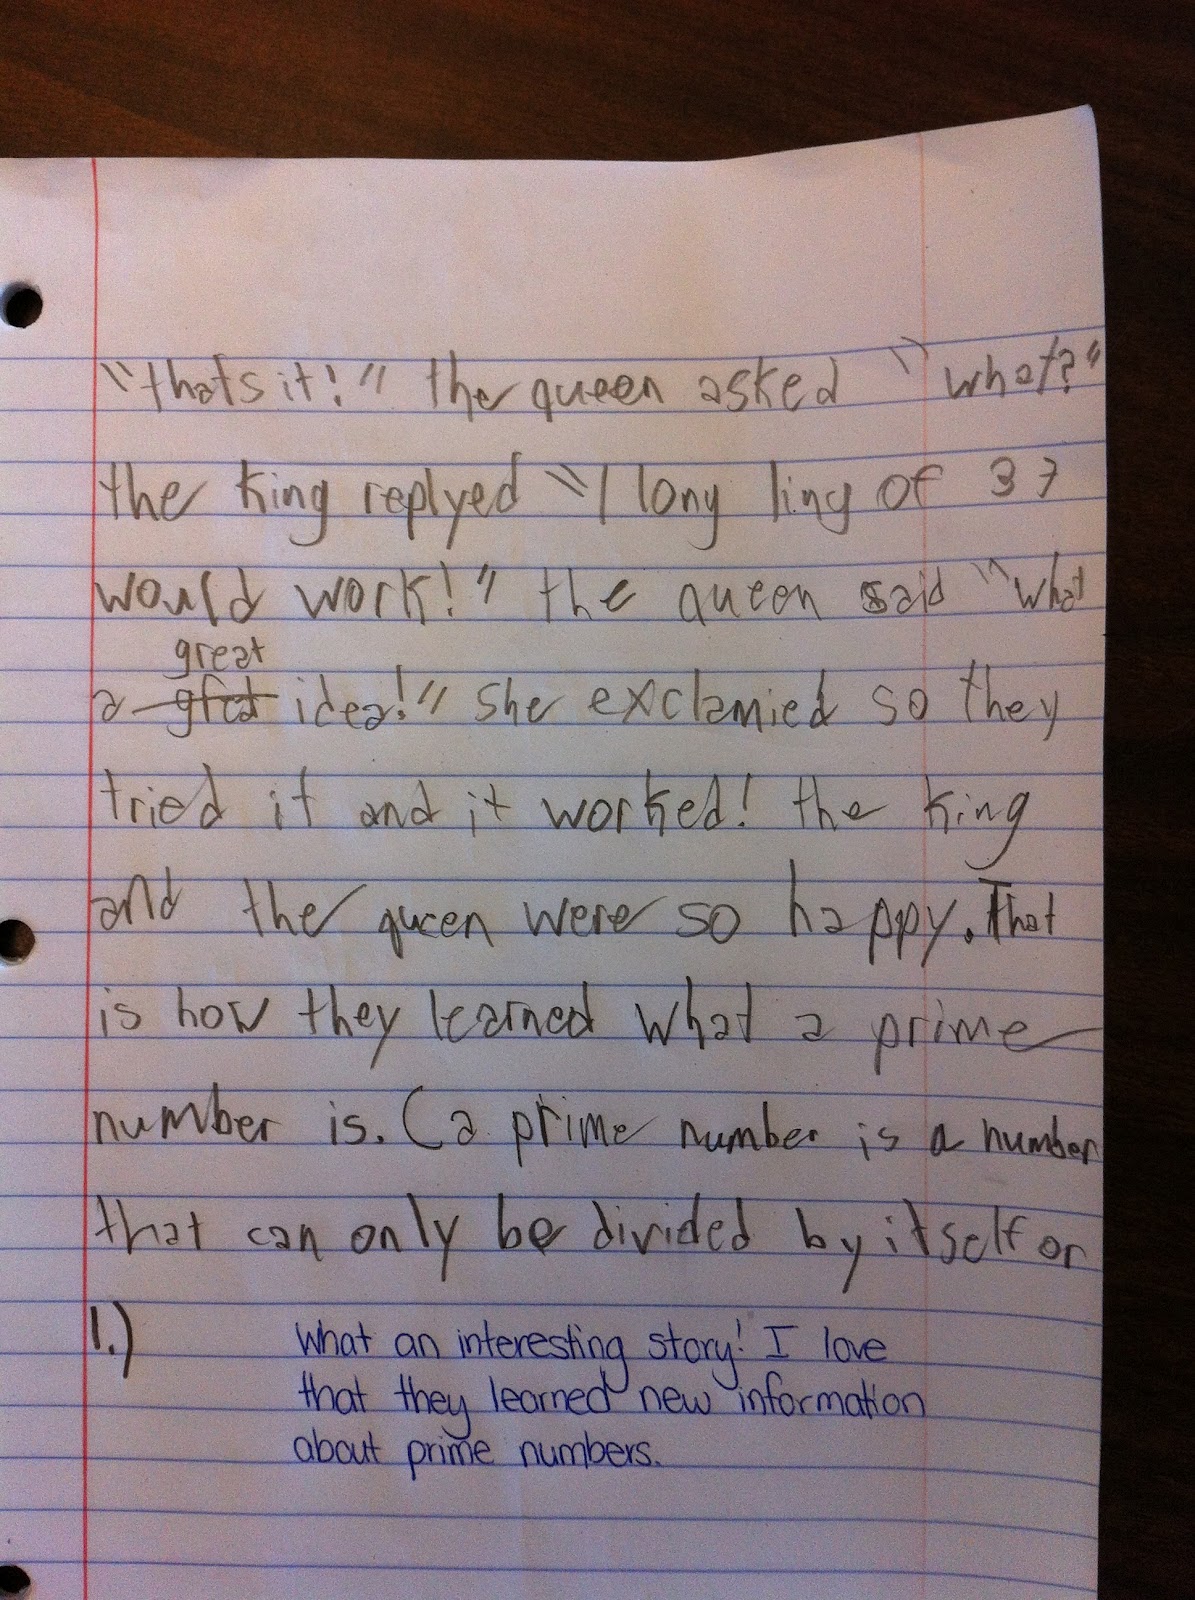 "thats it!" the queen asked "what?"
the king replyed "1 long ling of 37
would work!" the queen said "what
great
a idea!" she exclamied so they
tried it and it worked! the king
and the queen were so happy. That
is how they learned what a prime
number is. (a prime number is a number
that can only be divided by itself or
1.)
What an interesting story! I love
that they learned new information
about prime numbers.